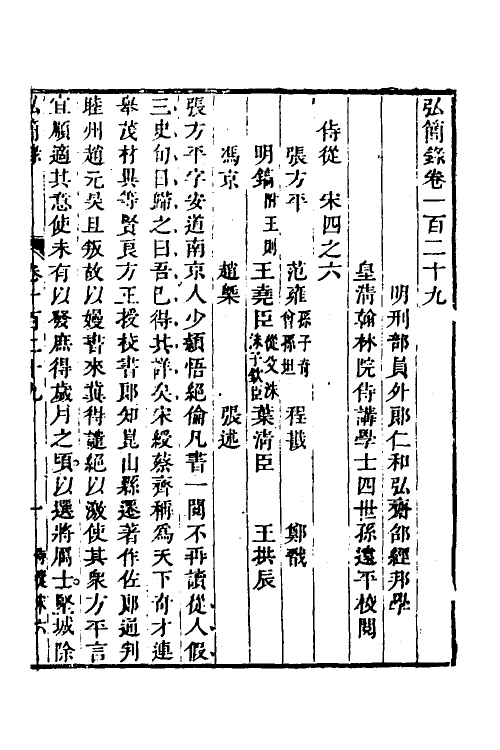 弘簡錄卷一百二十九
明刑部員外郎仁和弘齋邵經邦學
皇清翰林院侍講學士四世孫遠平校閱
侍從 宋四之六
張方平 范雍孫子奇曾孫坦 程戡 鄭戩
明鎬附王則 王堯臣從父洙洙子欽臣 葉清臣 王拱辰
馮京 趙槩 張述
張方平字安道南京人少穎悟絕倫凡書一閱不再讀從人假
三史旬日歸之曰吾已得其詳矣宋綬蔡齊稱爲天下奇才連
舉茂材異等賢良方正授校書郎知崑山縣遷著作佐郎通判
睦州趙元昊且叛故以嫚書來冀得譴絕以激使其衆方平言
宜順適其意使未有以發庶得歲月之頃以選將厲士堅城除
弘簡錄 卷一百二十九 一 侍從宋六